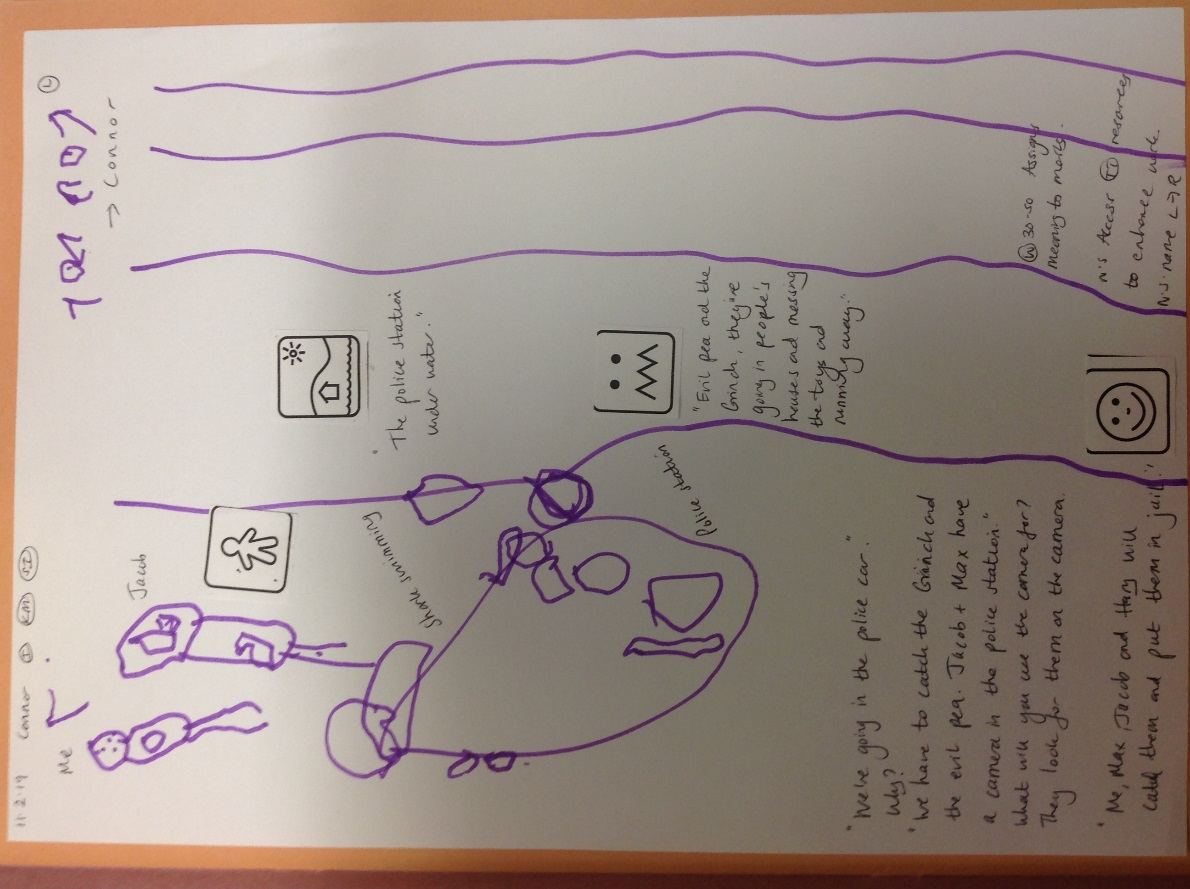 11.2.19 Connor I KM SI
Me
Jacob
→ Connor
L
Shark swimming
"The police station
under water."
Police station
"Evil pea and the
Grinch, they're
going in people's
houses and messing
the toys and
running away."
"We're going in the police car."
Why?
"We have to catch the Grinch and
the evil pea. Jacob + Max have
a camera in the police station."
What will you use the camera for?
They look for them on the camera.
"Me, Max, Jacob and Harry will
catch them and put them in jail."
W 30-50 Assigns
meaning to marks.
N.S Access resources
to enhance work.
N.S. name L→R